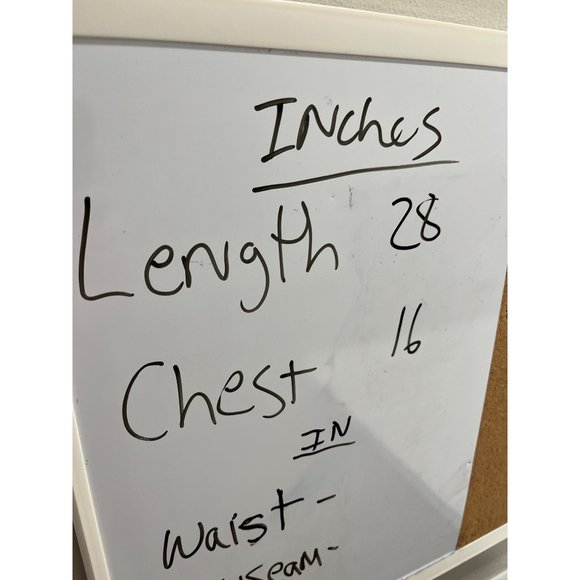 INches
Length 28
Chest 16
IN
Waist -